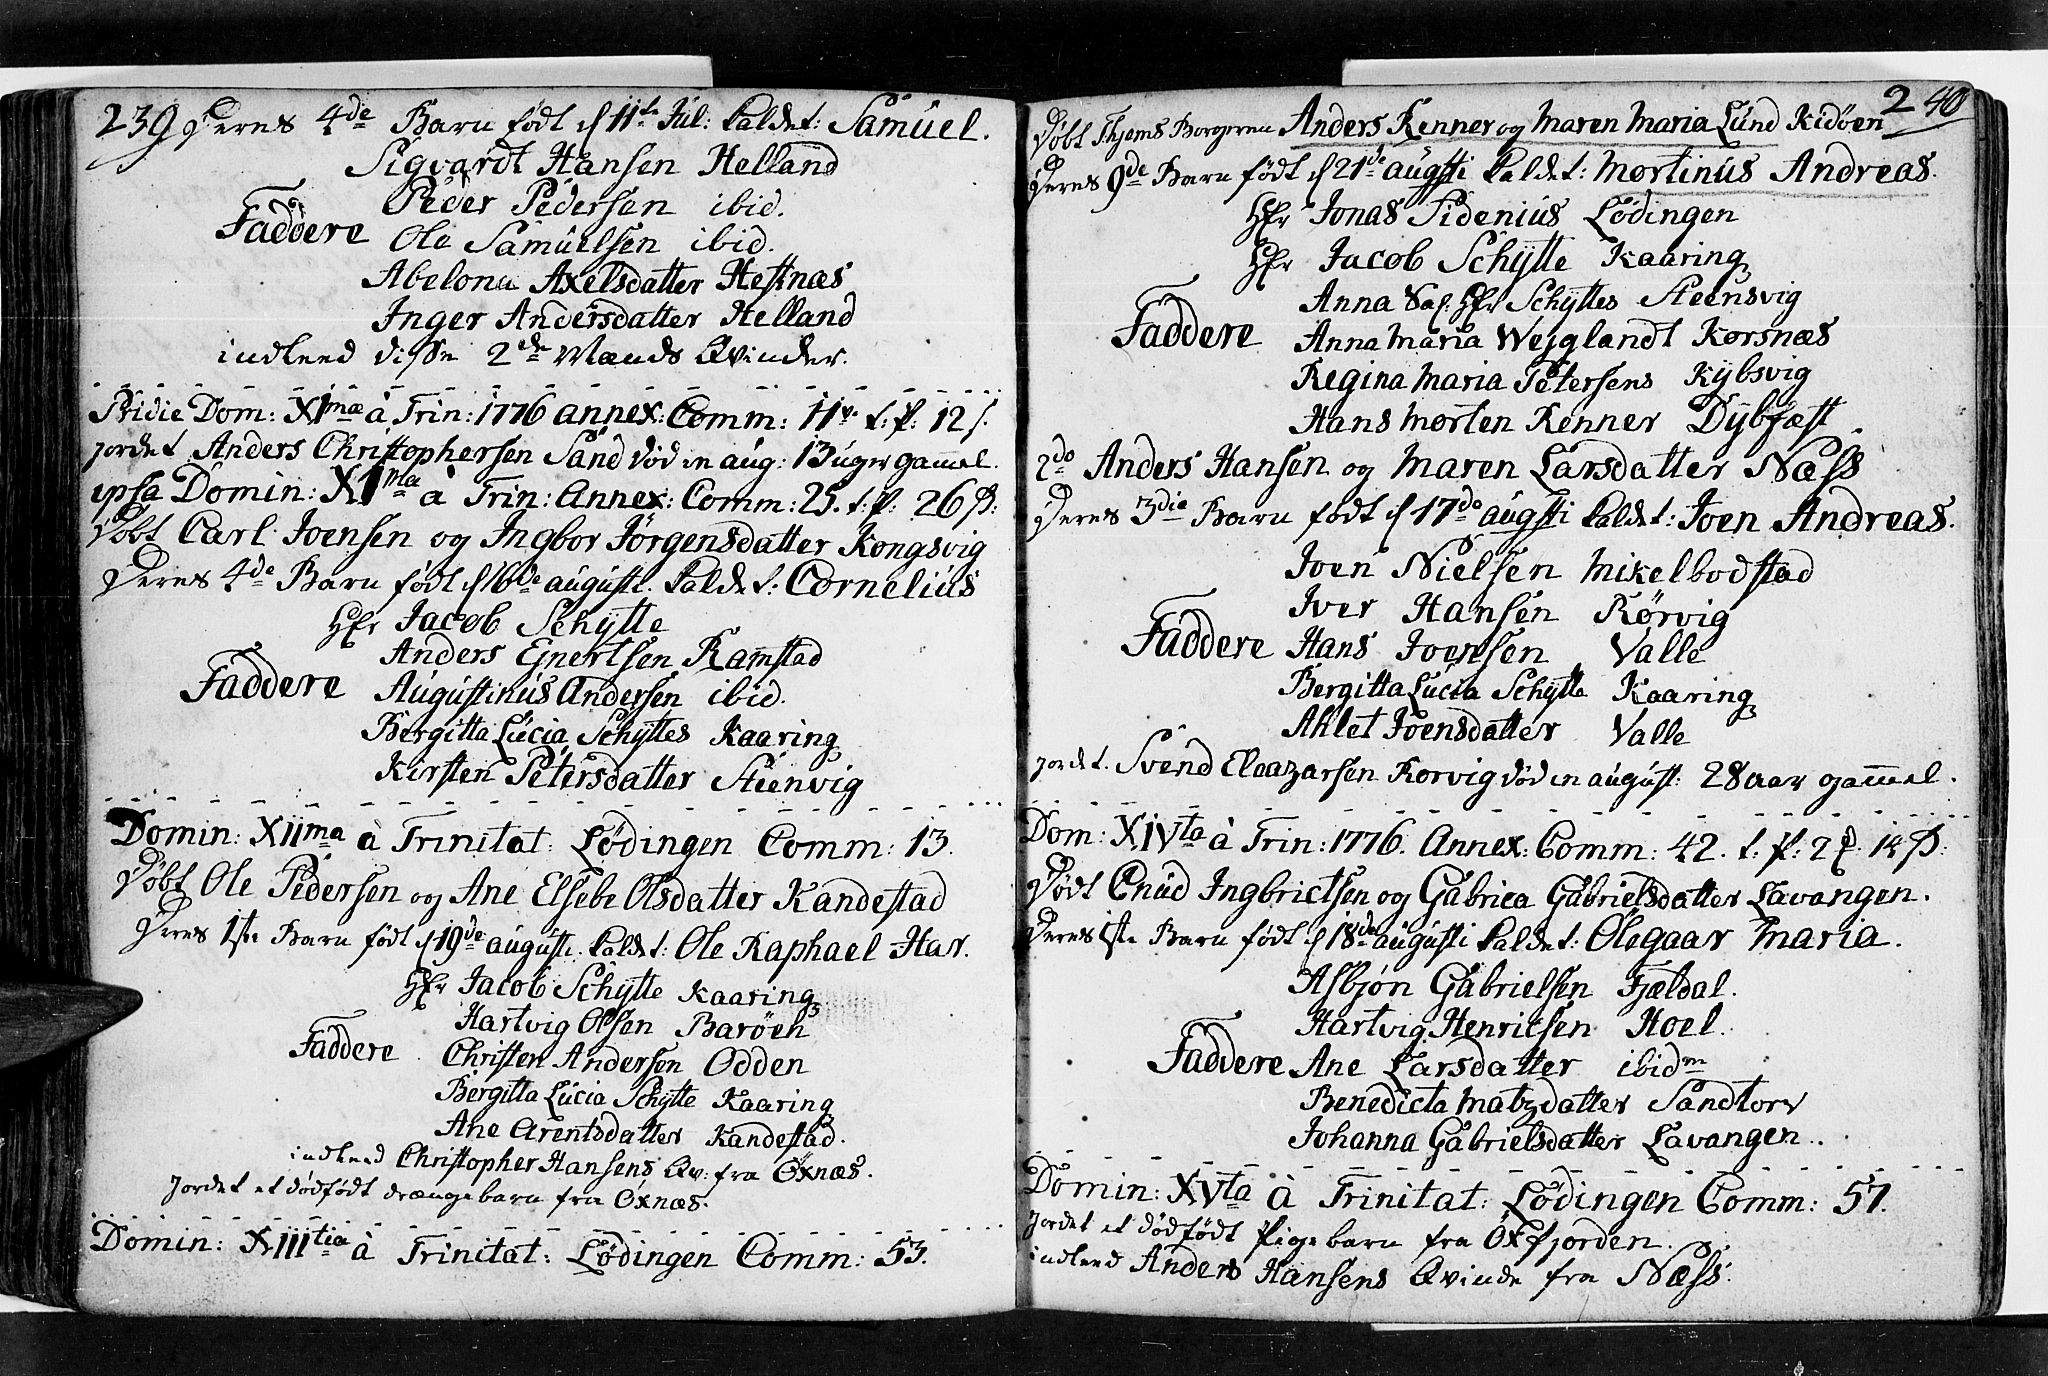 239 Deres 4de Barn født d 11te Jul: kaldet: Samuel.
Sigvardt Hansen Helland
Peder Pedersen ibid.
Faddere Ole Samuelsen ibid.
Abelona Axelsdatter Hestnæs
Inger Andersdatter Helland
indleed disse 2de Mænds Qvinder.
Pridie Dom: XImæ à Trin: 1776 annex: Comm: 11 t: p: 12 s.
jordet Anders Christophersen Sand død in aug: 13 uger gammel.
ipsa Domin: XIma à Trin: Annex: Comm: 25. t: p: 26 s:
Døbt Carl Joensen og Ingbor Jörgensdatter Kongsvig
Deres 4de Barn født d 16de augusti. kaldet: Cornelius
Hfr Jacob Schÿtte
Anders Ejnertsen Ramstad
Faddere Augustinus Andersen ibid.
Bergitta Lucia Schÿttes Kaaring
Kirsten Petersdatter Steenvig
Domin: XIIma à Trinitat: Lødingen Comm: 13.
Døbt Ole Pedersen og Ane Elsebe Olsdatter Kandestad
Deres 1ste Barn født d 19de augusti. kaldet: Ole Raphael Har.
Hfr Jacob Schÿtte Kaaring
Hartvig Olsen Barøen
Faddere Christen Andersen Odden
Bergitta Lucia Schÿtte Kaaring
Ane Arentsdatter Kandestad.
indleed Christopher Hansens Qv: fra Öxnæs.
Jordet et dødfødt drængebarn fra Öxnæs.
Domin: XIIItia à Trinitat: Lødingen Comm: 53.
240
Døbt Thjems Borgeren Anders Kenner og Maren Maria Lund Kidøen
Deres 9de Barn født d 21de augsti kaldet: Mortinus Andreas.
Hfr Jonas Sidenius Lödingen
Hfr Jacob Schÿtte Kaaring
Anna Sal. Hfr Schÿttes Steensvig
Faddere Anna Maria Wejglandt Korsnæs
Regina Maria Petersens Kÿbsvig
Hans Morten Kenner Dÿbfæst
2do Anders Hansen og Maren Larsdatter Næss
Deres 3die Barn født d 17de augsti kaldet: Joen Andreas.
Joen Nielsen Mikelbodstad
Iver Hansen Rørvig
Faddere Hans Joensen Valle
Bergitta Lucia Schÿtte Kaaring
Ahlet Joensdatter Valle
jordet. Svend Eleazarsen Korvig død in august: 28 aar gammel.
Dom: XIVta à Trin: 1776. Annex: Comm: 42. t: p: 2 14 s:
Døbt Cnud Ingbrictsen og Gabriea Gabrielsdatter Lavangen.
Deres 1ste Barn født d 18de augusti kaldet: Olegaar Maria.
Asbjøn Gabrielsen Fjeldal.
Hartvig Henricsen Hoel.
Faddere Ane Larsdatter ibidm
Benedicta Matzdatter Sandtorv
Johanna Gabrielsdatter Lavangen.
Domin: XVta à Trinitat: Lødingen Comm: 57.
Jordet et dødfødt Pigebarn fra Öxfjorden.
indleed Anders Hansens Qvinde fra Næss.